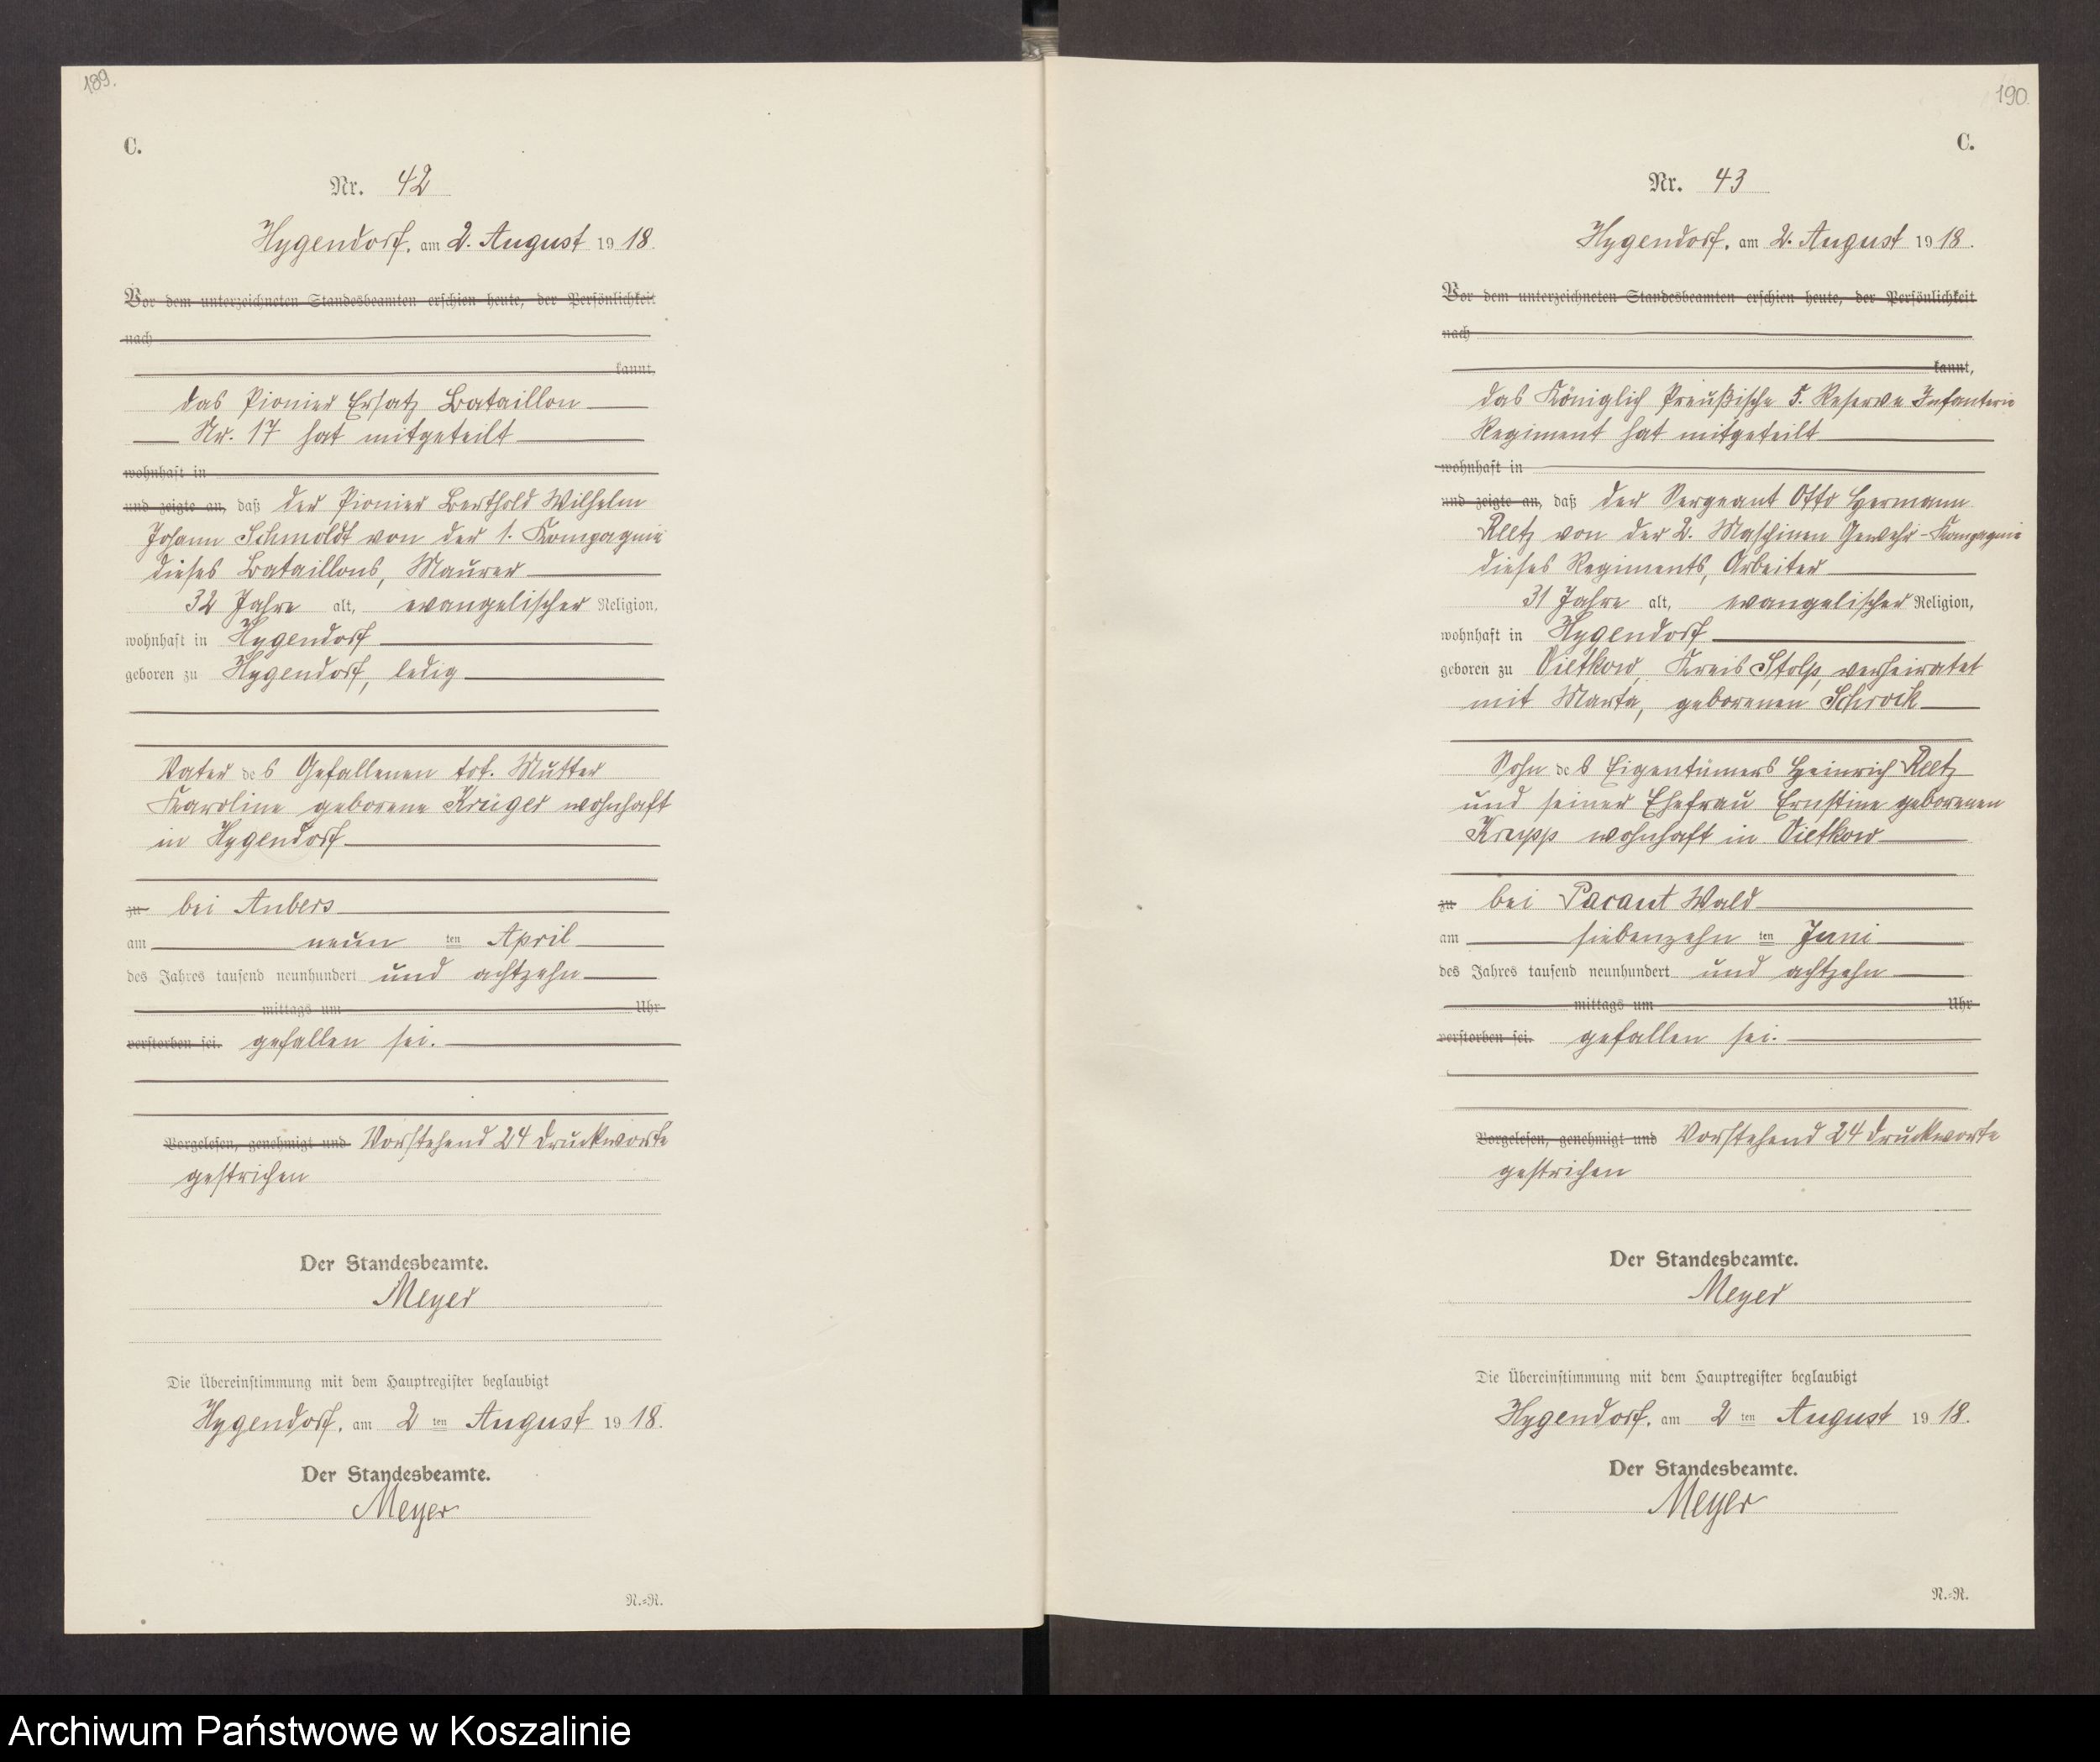 189.
C.
Nr. 42
Hygendorf, am 2. August 1918.
Vor dem unterzeichneten Standesbeamten erschien heute, der Persönlichkeit
nach
kannt,
das Pionier Ersatz Bataillon
Nr. 17 hat mitgeteilt
wohnhaft in
und zeigte an, daß der Pionier Berthold Wilhelm
Johann Schmoldt von der 1. Kompagnie
dieses Bataillons, Maurer
32 Jahre alt, evangelischer Religion,
wohnhaft in Hygendorf
geboren zu Hygendorf, ledig
Vater des Gefallenen tot. Mutter
Karoline geborene Krüger wohnhaft
in Hygendorf
zu bei Aubers
am neun ten April
des Jahres tausend neunhundert und achtzehn
mittags um Uhr
verstorben sei. gefallen sei.
Vorgelesen, genehmigt und Vorstehend 24 Druckworte
gestrichen
Der Standesbeamte.
Meyer
Die Übereinstimmung mit dem Hauptregister beglaubigt
Hygendorf, am 2 ten August 1918.
Der Standesbeamte.
Meyer
N.=R.
190.
C.
Nr. 43
Hygendorf, am 2. August 1918.
Vor dem unterzeichneten Standesbeamten erschien heute, der Persönlichkeit
nach
kannt,
das Königlich Preußische 5. Reserve Infanterie
Regiment hat mitgeteilt
wohnhaft in
und zeigte an, daß der Sergeant Otto Hermann
Reetz von der 2. Maschinen Gewehr-Kompagnie
dieses Regiments, Arbeiter
31 Jahre alt, evangelischer Religion,
wohnhaft in Hygendorf
geboren zu Vietkow, Kreis Stolp, verheiratet
mit Marta, geborenen Schrock
Sohn des Eigentümers Heinrich Reetz
und seiner Ehefrau Ernstine geborenen
Krupp wohnhaft in Vietkow
zu bei Parant Wald
am siebenzehn ten Juni
des Jahres tausend neunhundert und achtzehn
mittags um Uhr
verstorben sei. gefallen sei.
Vorgelesen, genehmigt und Vorstehend 24 Druckworte
gestrichen
Der Standesbeamte.
Meyer
Die Übereinstimmung mit dem Hauptregister beglaubigt
Hygendorf, am 2 ten August 1918.
Der Standesbeamte.
Meyer
N.=R.
Archiwum Państwowe w Koszalinie